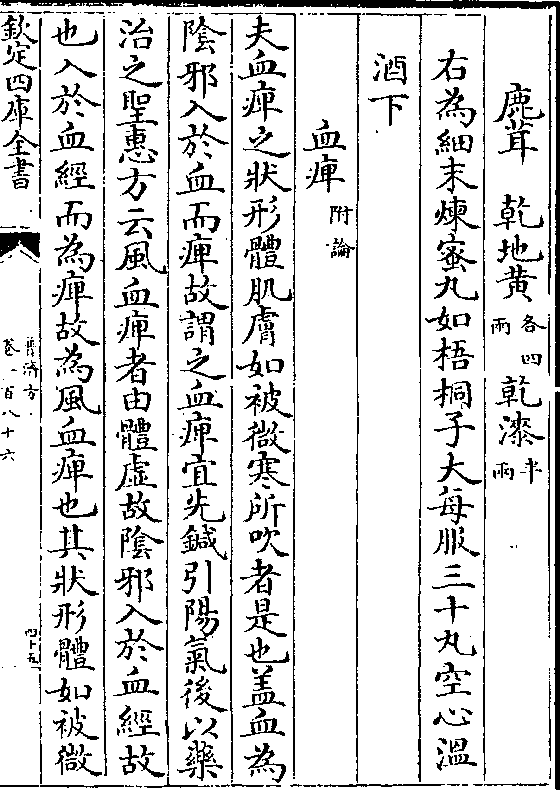 鹿茸　乾地黄各四兩　乾漆半兩
右為細末煉蜜丸如梧桐子大每服三十丸空心温
酒下
血痺附論
夫血痺之狀形體肌膚如被微寒所吹者是也盖血為
陰邪入於血而痺故謂之血痺宜先鍼引陽氣後以藥
治之聖惠方云風血痺者由體虚故陰邪入於血經故
也入於血經而為痺故為風血痺也其狀形體如被微
欽定四庫全書
普濟方
卷一百八十六
四十五